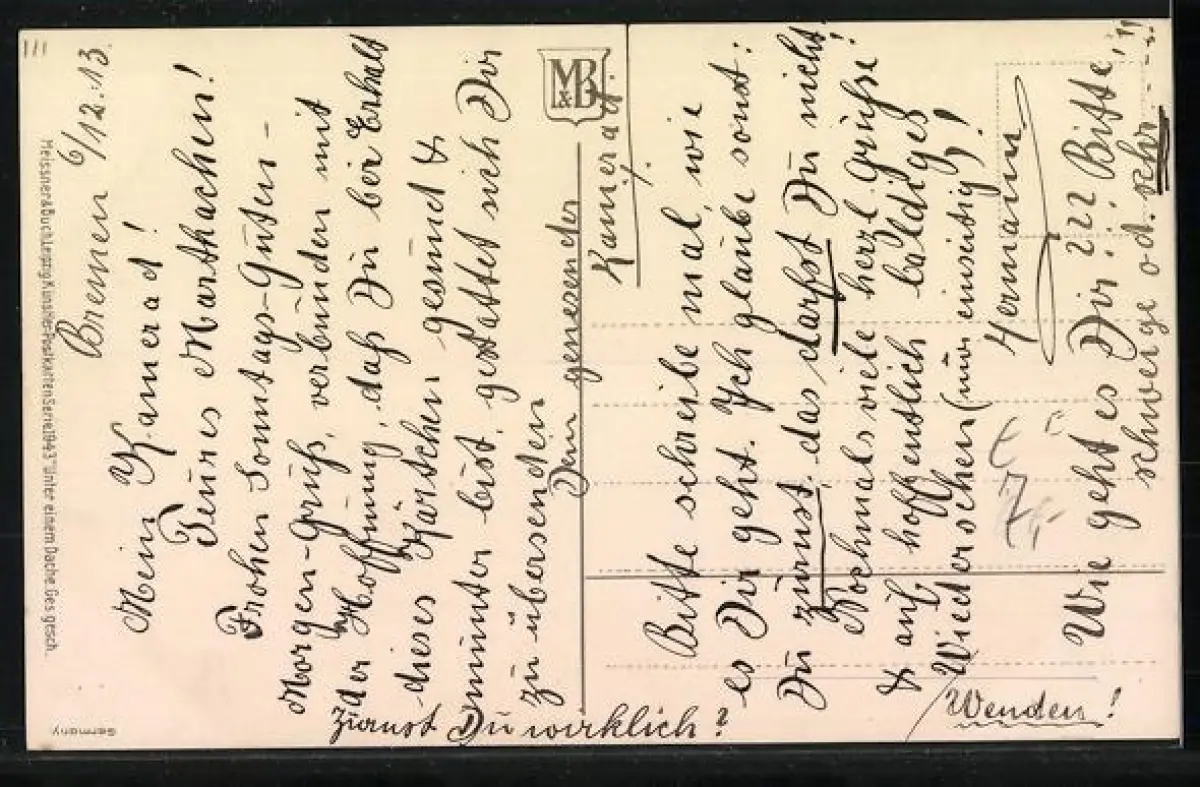 Bremen 6/12.13.
Mein Kamerad!
Teures Marthachen!
Frohen Sonntags-Guten-
Morgen-Gruß, verbunden mit
der Hoffnung, daß Du bei Erhalt
dieses Kärtchen gesund &
munter bist, gestattet sich Dir
zu übersenden
Dein genesender
Kamerad.
Zürnst Du wirklich?
Bitte schreibe mal, wie
es Dir geht. Ich glaube sonst:
Du zürnst, das darfst Du nicht!
Nochmals viele herzl. Grüße
& auf hoffentlich baldiges
Wiedersehen (nur einseitig)!
Hermann
Wie geht es Dir? ??? Bitte,
schweige od. schr----
Wenden!
M&B
Meissner & Buch Leipzig Künstler-Postkarten Serie 1943 "Unter einem Dache. Ges. gesch.
Germany